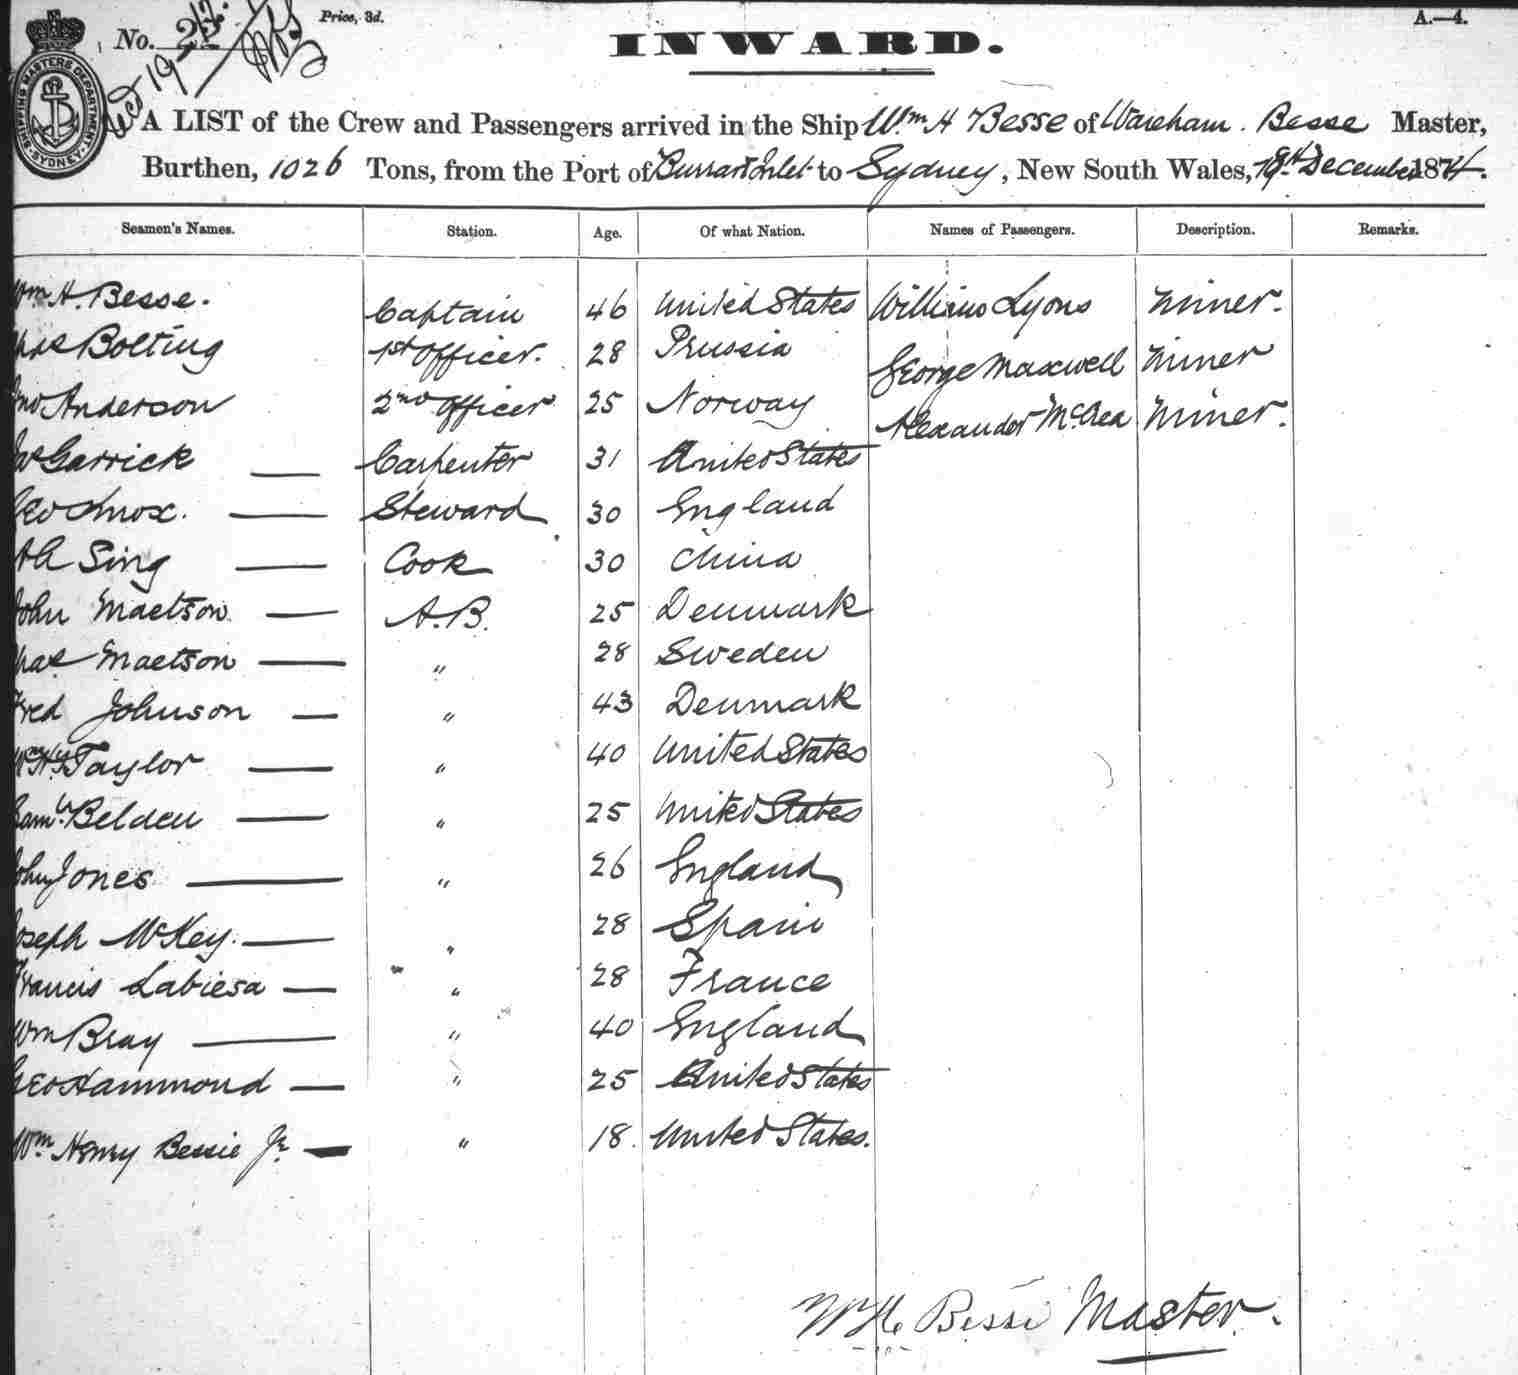 No. Price, 3d. A.—4.
INWARD.
SHIPPING MASTERS DEPARTMENT SYDNEY
A LIST of the Crew and Passengers arrived in the Ship Wm H Besse of Wareham. Besse Master,
Burthen, 1026 Tons, from the Port of Burrard Inlet to Sydney, New South Wales, December 1874.
Seamen's Names. Station. Age. Of what Nation. Names of Passengers. Description. Remarks.
Wm H. Besse. Captain 46 United States William Lyons Miner.
Chas Bolting 1st Officer. 28 Prussia George Maxwell Miner
Jno Anderson 2nd Officer 25 Norway Alexander McCrea Miner.
Garrick Carpenter 31 United States
Geo Knox. Steward 30 England
Ah Sing Cook 30 China
John Maetson A.B. 25 Denmark
Chas Maetson " 28 Sweden
Fred Johnson " 43 Denmark
Wm Hy Taylor " 40 United States
Saml. Belden " 25 United States
John Jones " 26 England
Joseph McKey. " 28 Spain
Francis Labiesa " 28 France
Wm Bray " 40 England
Geo Hammond " 25 United States
Wm Henry Bessie Jr " 18. United States.
Wm H. Besse Master.